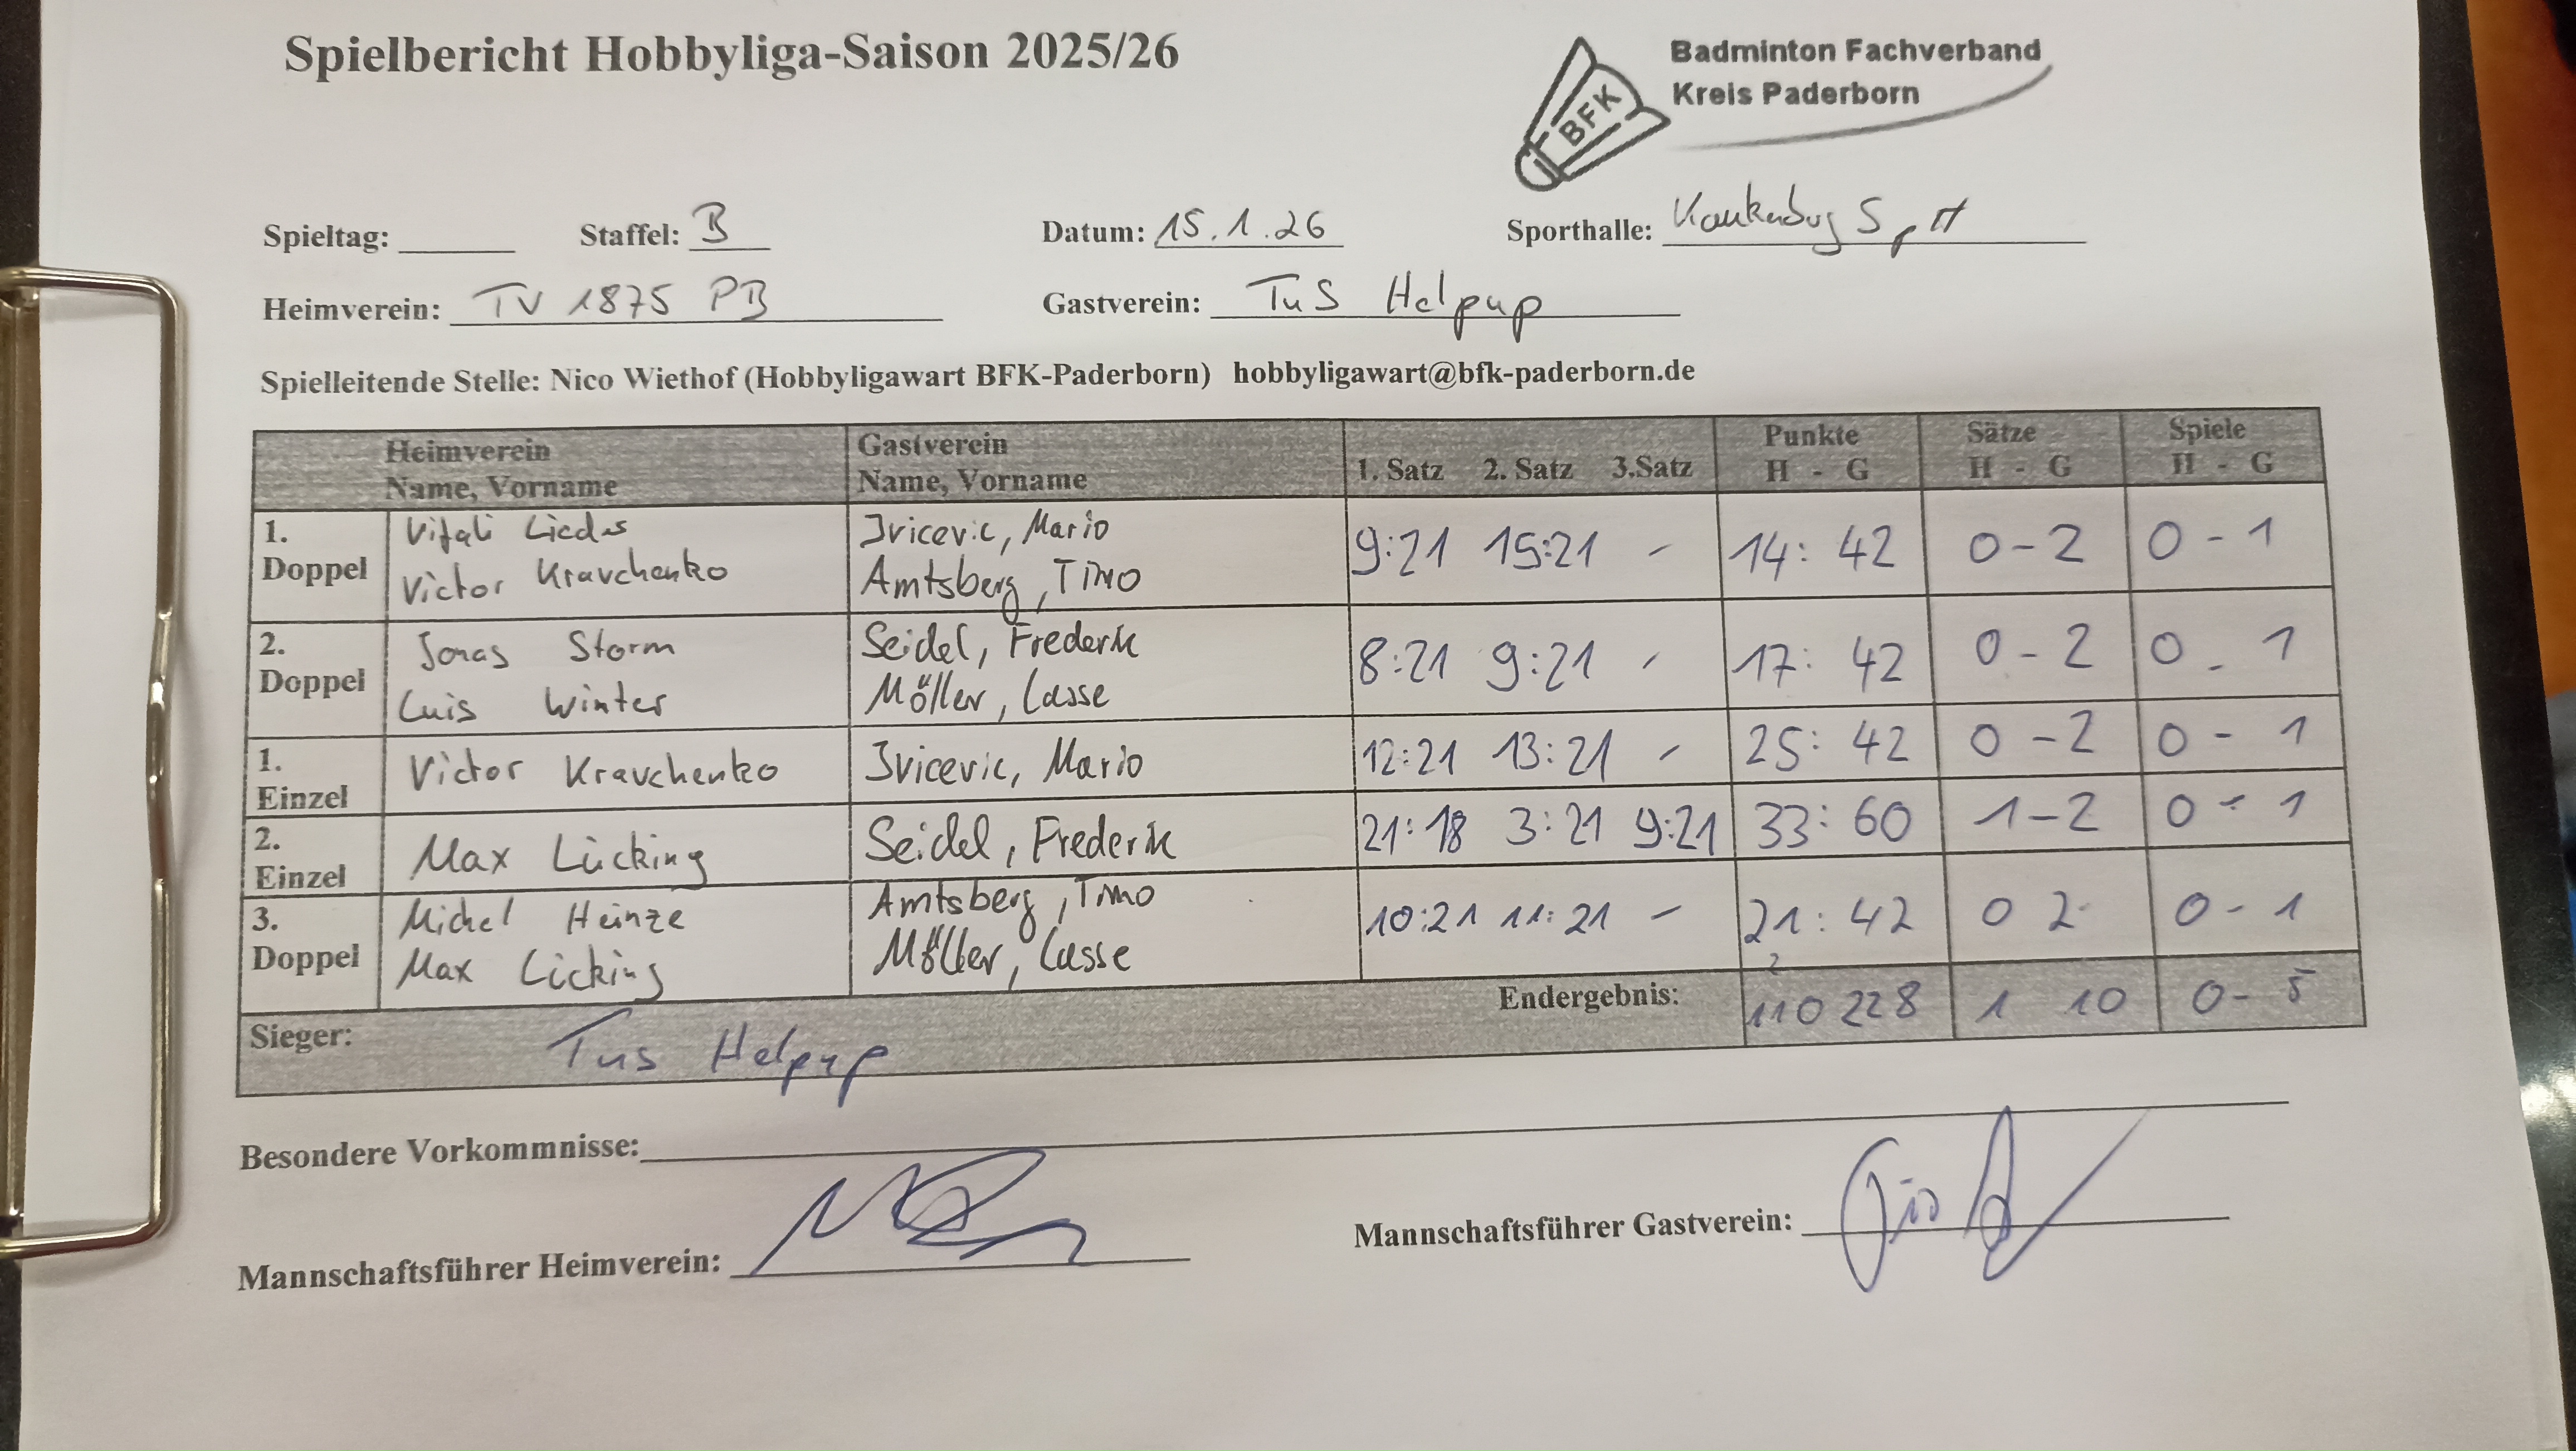 Spielbericht Hobbyliga-Saison 2025/26
Badminton Fachverband
Kreis Paderborn
BFK
Spieltag: Staffel: B Datum: 15.1.26 Sporthalle:
Heimverein: TV 1875 PB Gastverein: TuS Helpup
Spielleitende Stelle: Nico Wiethof (Hobbyligawart BFK-Paderborn) hobbyligawart@bfk-paderborn.de
Heimverein Gastverein Punkte Sätze Spiele
Name, Vorname Name, Vorname 1. Satz 2. Satz 3.Satz H - G H - G H - G
1. Doppel
Vitali
Victor Kravchenko
Ivicevic, Mario
Amtsberg, Timo
9:21 15:21 - 14: 42 0-2 0-1
2. Doppel
Jonas Storm
Luis Winter
Seidel, Frederik
Möller, Lasse
8:21 9:21 - 17: 42 0-2 0-1
1. Einzel
Victor Kravchenko
Ivicevic, Mario
12:21 13:21 - 25: 42 0-2 0-1
2. Einzel
Max Lücking
Seidel, Frederik
21:18 3:21 9:21 33: 60 1-2 0-1
3. Doppel
Michel Heinze
Max Lücking
Amtsberg, Timo
Möller, Lasse
10:21 11:21 - 21: 42 0 2 0-1
2
Endergebnis: 110 228 1 10 0-5
Sieger: Tus Helpup
Besondere Vorkommnisse:
Mannschaftsführer Heimverein: Mannschaftsführer Gastverein: